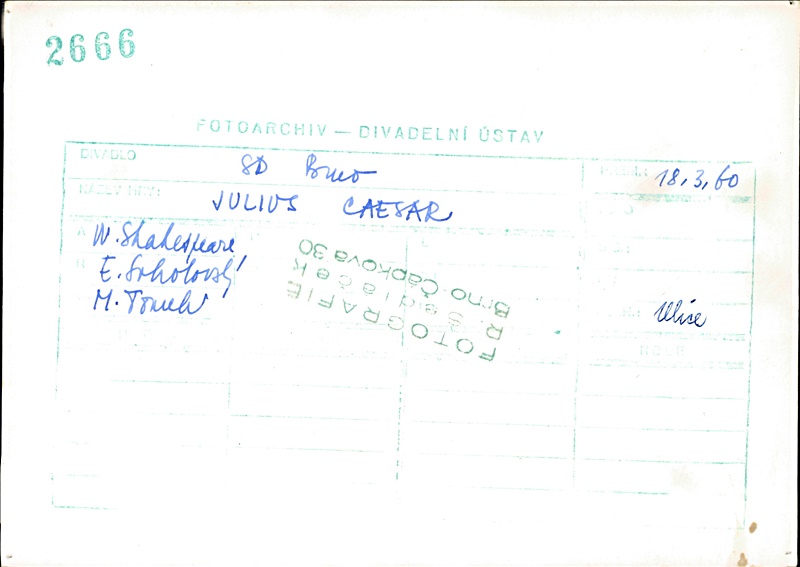 2666
FOTOARCHIV — DIVADELNÍ ÚSTAV
DIVADLO SD Brno 18.3.60
NÁZEV HRY: JULIUS CAESAR
W. Shakespeare
E. Sokolovský
M. Tomek
Ulice
ROLE
FOTOGRAFIE
R. Sedláček
Brno-Čápkova 30